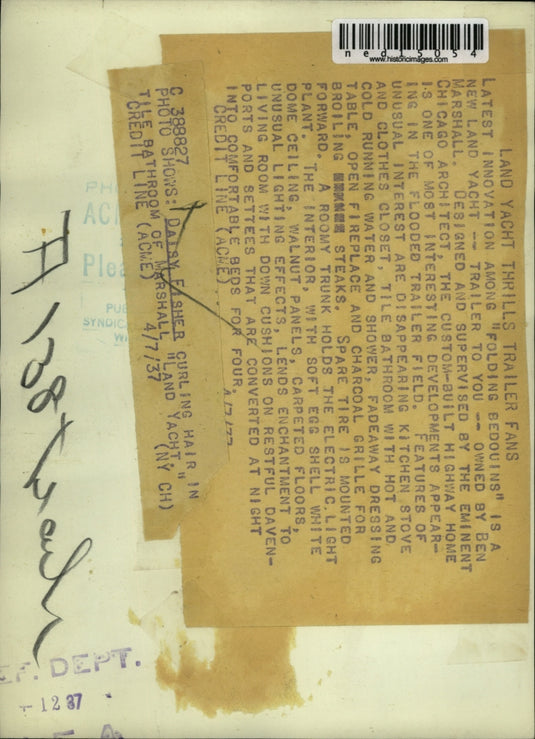 ned15054
www.historicimages.com
LAND YACHT THRILLS TRAILER FANS
LATEST INNOVATION AMONG "FOLDING BEDOUINS" IS A
NEW LAND YACHT -- TRAILER TO YOU -- OWNED BY BEN
MARSHALL. DESIGNED AND SUPERVISED BY THE EMINENT
CHICAGO ARCHITECT, THE CUSTOM-BUILT HIGHWAY HOME
IS ONE OF MOST INTERESTING DEVELOPMENTS APPEAR-
ING IN THE FLOODED TRAILER FIELD. FEATURES OF
UNUSUAL INTEREST ARE DISAPPEARING KITCHEN STOVE
AND CLOTHES CLOSET, TILE BATHROOM WITH HOT AND
COLD RUNNING WATER AND SHOWER, FADEAWAY DRESSING
TABLE, OPEN FIREPLACE AND CHARCOAL GRILLE FOR
BROILING STEAKS. SPARE TIRE IS MOUNTED
FORWARD. A ROOMY TRUNK HOLDS THE ELECTRIC LIGHT
PLANT. THE INTERIOR, WITH SOFT EGG SHELL WHITE
DOME CEILING, WALNUT PANELS, CARPETED FLOORS,
UNUSUAL LIGHTING EFFECTS, LENDS ENCHANTMENT TO
LIVING ROOM WITH DOWN CUSHIONS ON RESTFUL DAVEN-
PORTS AND SETTEES THAT ARE CONVERTED AT NIGHT
INTO COMFORTABLE BEDS FOR FOUR.
CREDIT LINE (ACME)
C 388827
PHOTO SHOWS: DAISY FISHER CURLING HAIR IN
TILE BATHROOM OF MARSHALL "LAND YACHT."
CREDIT LINE (ACME) 4/7/37 (NY CH)
PH
AC
Plea
PU
SYNDICA
EF. DEPT.
12 37